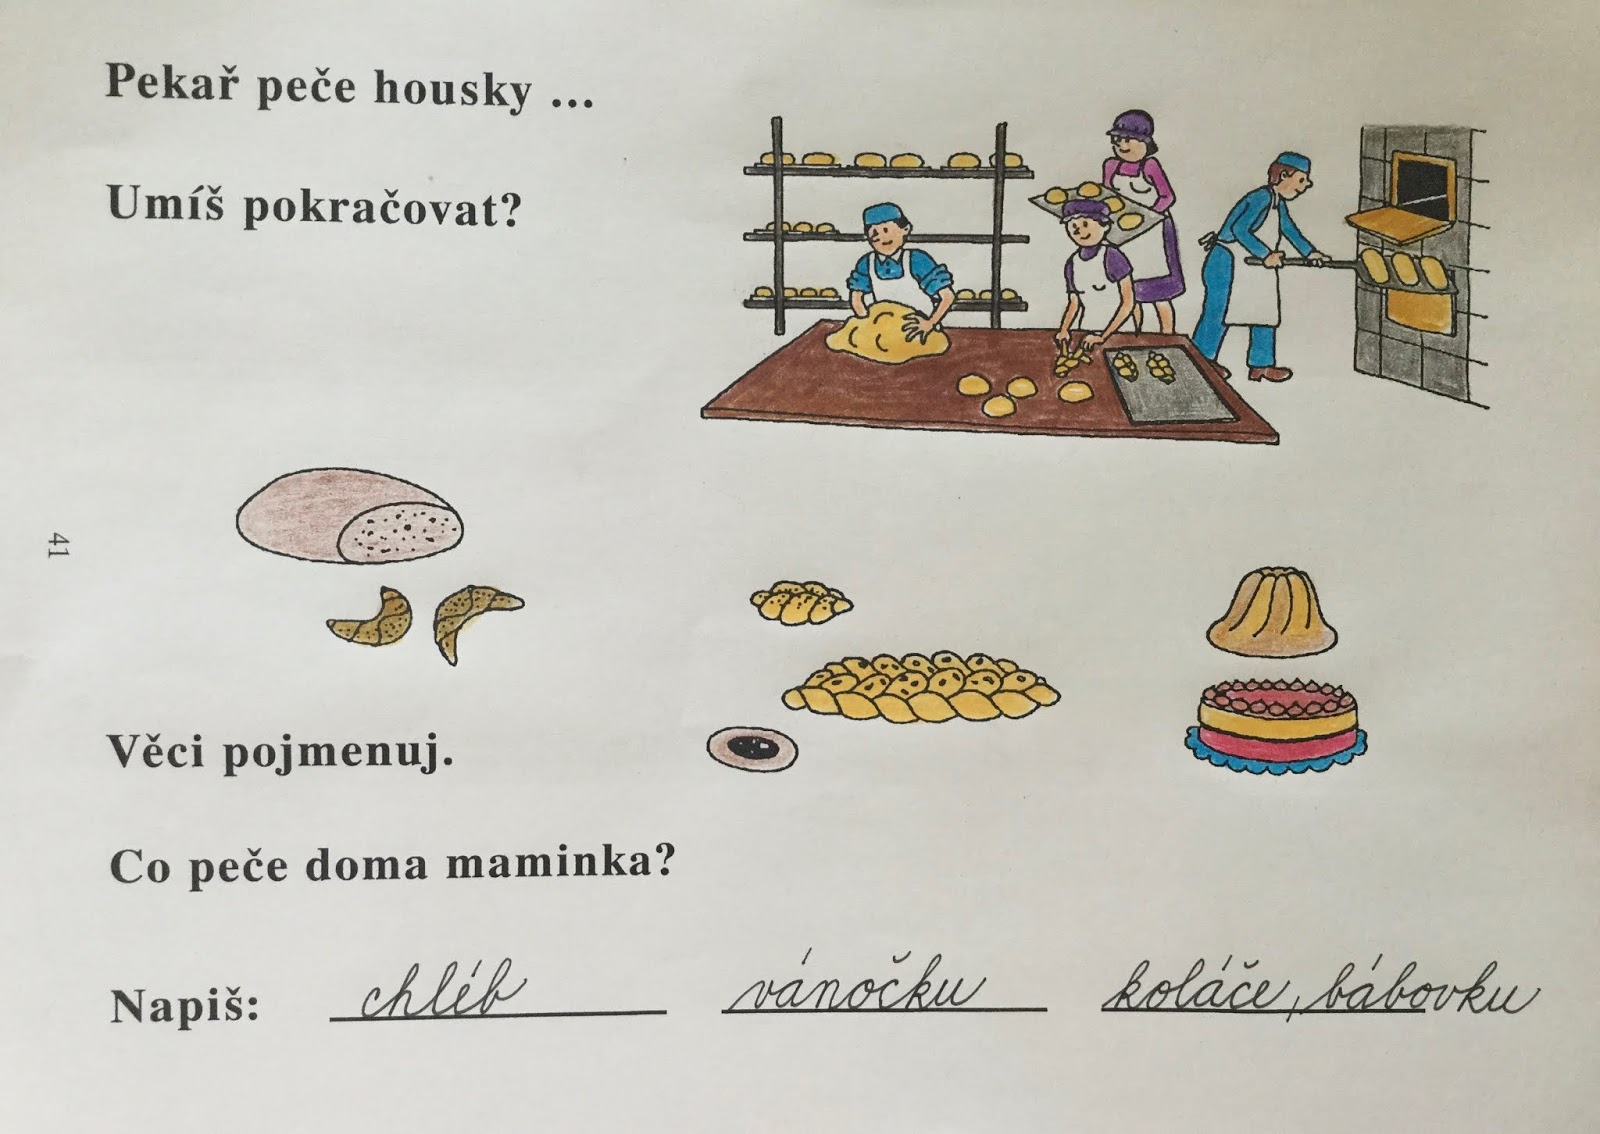 Pekař peče housky ...
Umíš pokračovat?
41
Věci pojmenuj.
Co peče doma maminka?
Napiš: chléb vánočku koláče, bábovku